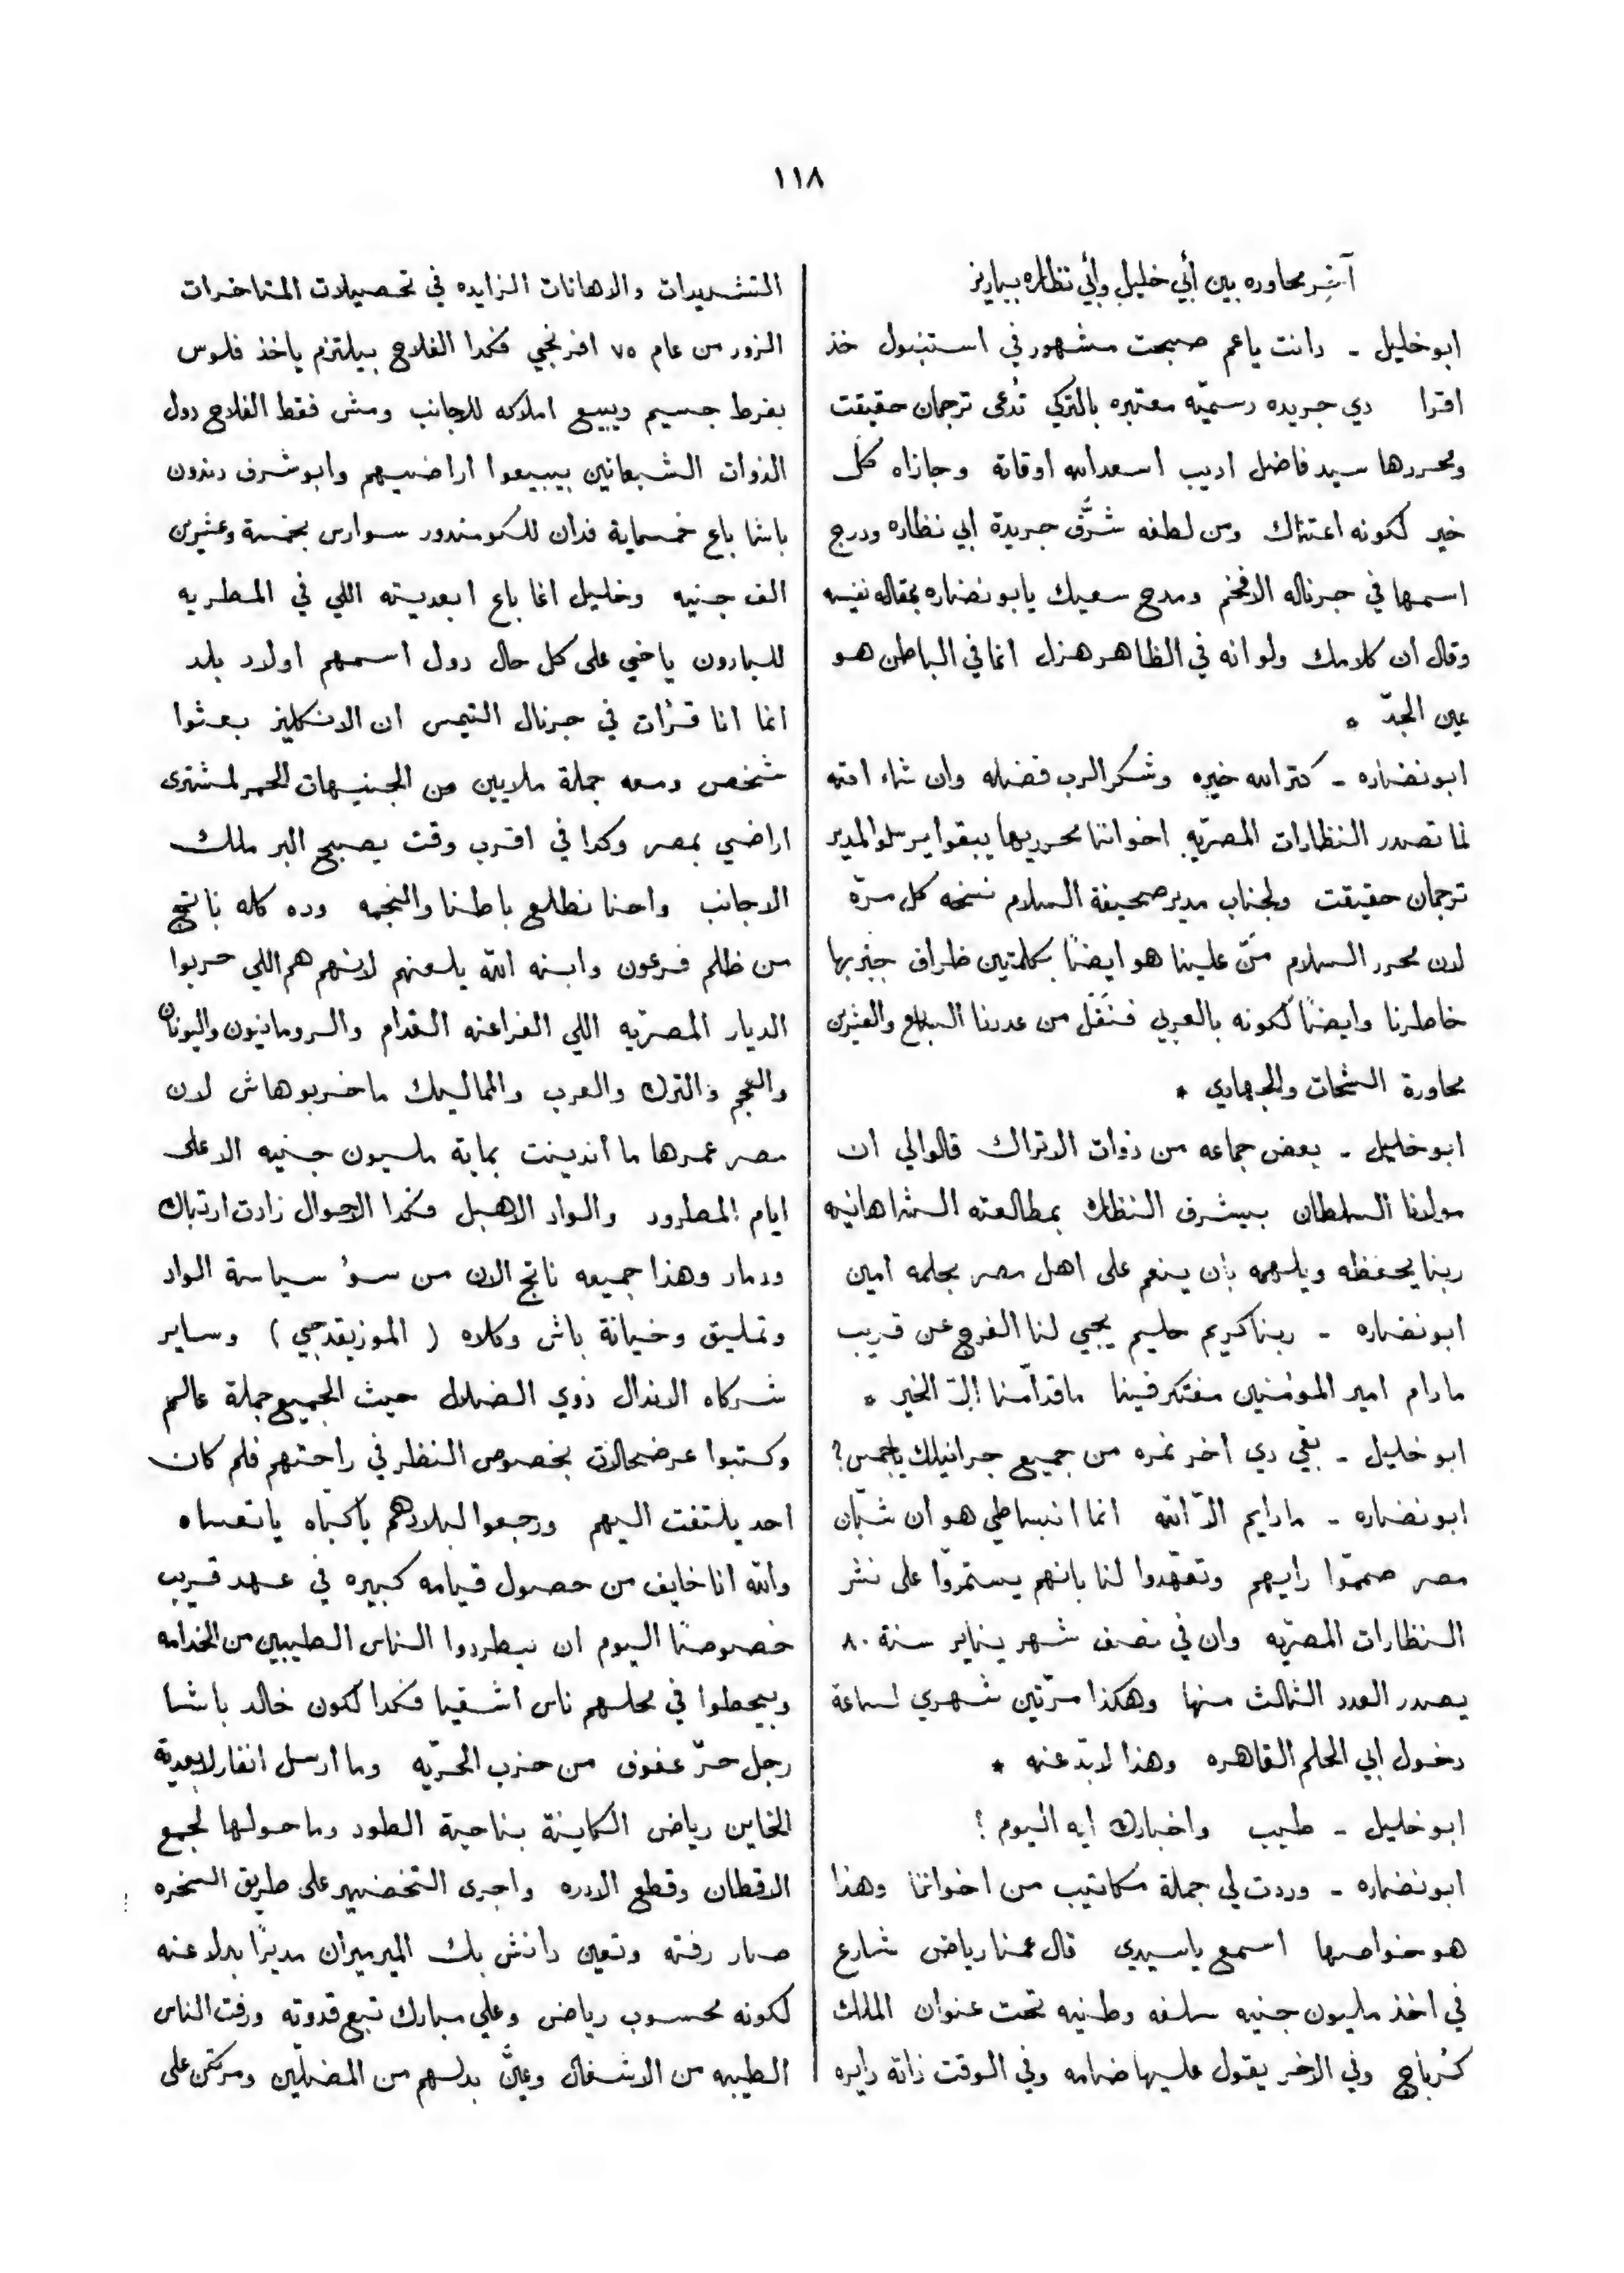 ١١٨
آخر محاوره بين أبي خليل وأبي نظاره بباريز
ابو خليل ـ دانت ياعم صبحت مشهور في استنبول خذ
اقرا دي جريده رسميّه معتبره بالتركي تُدعى ترجمان حقيقت
ومحررها سيد فاضل اديب اسعد الله اوقاته وجازاه كل
خير لكونه اعتناك ومن لطفه شرَّف جريدة ابي نظاره ودرج
اسمها في جرناله الافخم ومدح سعيك يابو نضاره بمقاله نفيسه
وقال ان كلامك ولو انه في الظاهر هزل انما في الباطن هو
عين الجدّ ٭
ابو نضاره ـ كتر الله خيره وشكر الرب فضله وان شاء الله
لما تصدر النظارات المصريّه اخواننا محرريها يبقوا يرسلوا لمدير
ترجمان حقيقت ولجناب مدير صحيفة السلام نسخه كل مرّة
لان محرر السلام منّ علينا هو ايضًا بكلمتين ظراف جبر بها
خاطرنا وايضًا لكونه بالعربي فنَقَل من عددنا السابع والعشرين
محاورة الشحات والجهادي ٭
ابو خليل ـ بعض جماعه من ذوات الاتراك قالوا لي ان
مولانا السلطان بيشرف النظاره بمطالعته الشاهانيه
ربنا يحفظه ويلهمه بأن ينعم على اهل مصر بحلمه امين
ابو نضاره ـ ربنا كريم حليم يجي لنا الفرج عن قريب
مادام امير المؤمنين مفتكر فينا ما قدّامنا الّا الخير ٭
ابو خليل ـ بقي دي اخر نمره من جميع جرانيلك ياجمس؟
ابو نضاره ـ مادايم الّا الله انما انبساطي هو ان شبّان
مصر صمّموا رايهم وتعهّدوا لنا بانهم يستمرّوا على نشر
النظارات المصريّه وان في نصف شهر يناير سنة ٨٠
يصدر العدد الثالث منها وهكذا مرّتين شهري لساعة
دخول ابي الحلم القاهره وهذا لابدّ عنه ٭
ابو خليل ـ طيب واخبارك ايه اليوم ؟
ابو نضاره ـ وردت لي جملة مكاتيب من اخواننا وهذا
هو خواصها اسمع ياسيدي قال عمنا رياض شارع
في اخذ مليون جنيه سلفه وطنيه تحت عنوان الملك
كُرباج وفي الاخر يقول عليها ضامه وفي الوقت ذاته دايره
التشديدات والاهانات الزايده في تحصيلات المتاخرات
الزور من عام ٧٥ افرنجي فكدا الفلاح بيلتزم ياخذ فلوس
بفرط جسيم ويبيع املاكه للاجانب ومش فقط الفلاح دول
الذوات الشبعانين بيبيعوا اراضيهم وابو شرف دندون
باشا باع خمسماية فدان للكومندور سوارس بخمسة وعشرين
الف جنيه وخليل اغا باع ابعديته اللي في المطريه
للبارون ياخي على كل حال دول اسمهم اولاد بلد
انما انا قرأت في جرنال التيمس ان الانكليز بعثوا
شخص ومعه جملة ملايين من الجنيهات الحمر لمشترى
اراضي بمصر وكدا في اقرب وقت يصبح البر ملك
الاجانب واحنا نطلع باطنا والنجمه وده كله ناتج
من ظلم فرعون وابنه الله يلعنهم لانهم هم اللي خربوا
الديار المصريّه اللي الفراعنه القدام والرومانيون واليونان
والعجم والترك والعرب والماليك ماخربوهاش لان
مصر عمرها ما أندينت بماية مليون جنيه الا على
ايام المطرود والواد الاهبل فكدا الاحوال زادت ارتباك
ودمار وهذا جميعه ناتج الان من سوء سياسة الواد
وتمليق وخيانة باش وكلاه ( الموزيقدجي ) وساير
شركاه الاندال ذوي الضلال حيث الجميع جملة عالم
وكتبوا عرضحالات بخصوص النظر في راحتهم فلم كان
احد يلتفت اليهم ورجعوا لبلادهم يا كبّاه ياتعساه
والله انا خايف من حصول قيامه كبيره في عهد قريب
خصوصًا اليوم ان بيطردوا الناس الطيبين من الخدامه
وبيحطوا في محلهم ناس اشقيا فكدا لكون خالد باشا
رجل حرّ عفوف من حزب الحرّيه وما أرسل انفار لابعدية
الخاين رياض الكاينة بناحية الطود وما حولها لجمع
الاقطان وقطع الادره واجرى التخضير على طريق السخره
صار رفته وتعين دانش بك الميرميران مديرًا بدلا عنه
لكونه محسوب رياض وعلي مبارك تبع قدوته ورفت الناس
الطيبه من الاشغال وعيَّن بدلهم من المضلّين ومركتن على